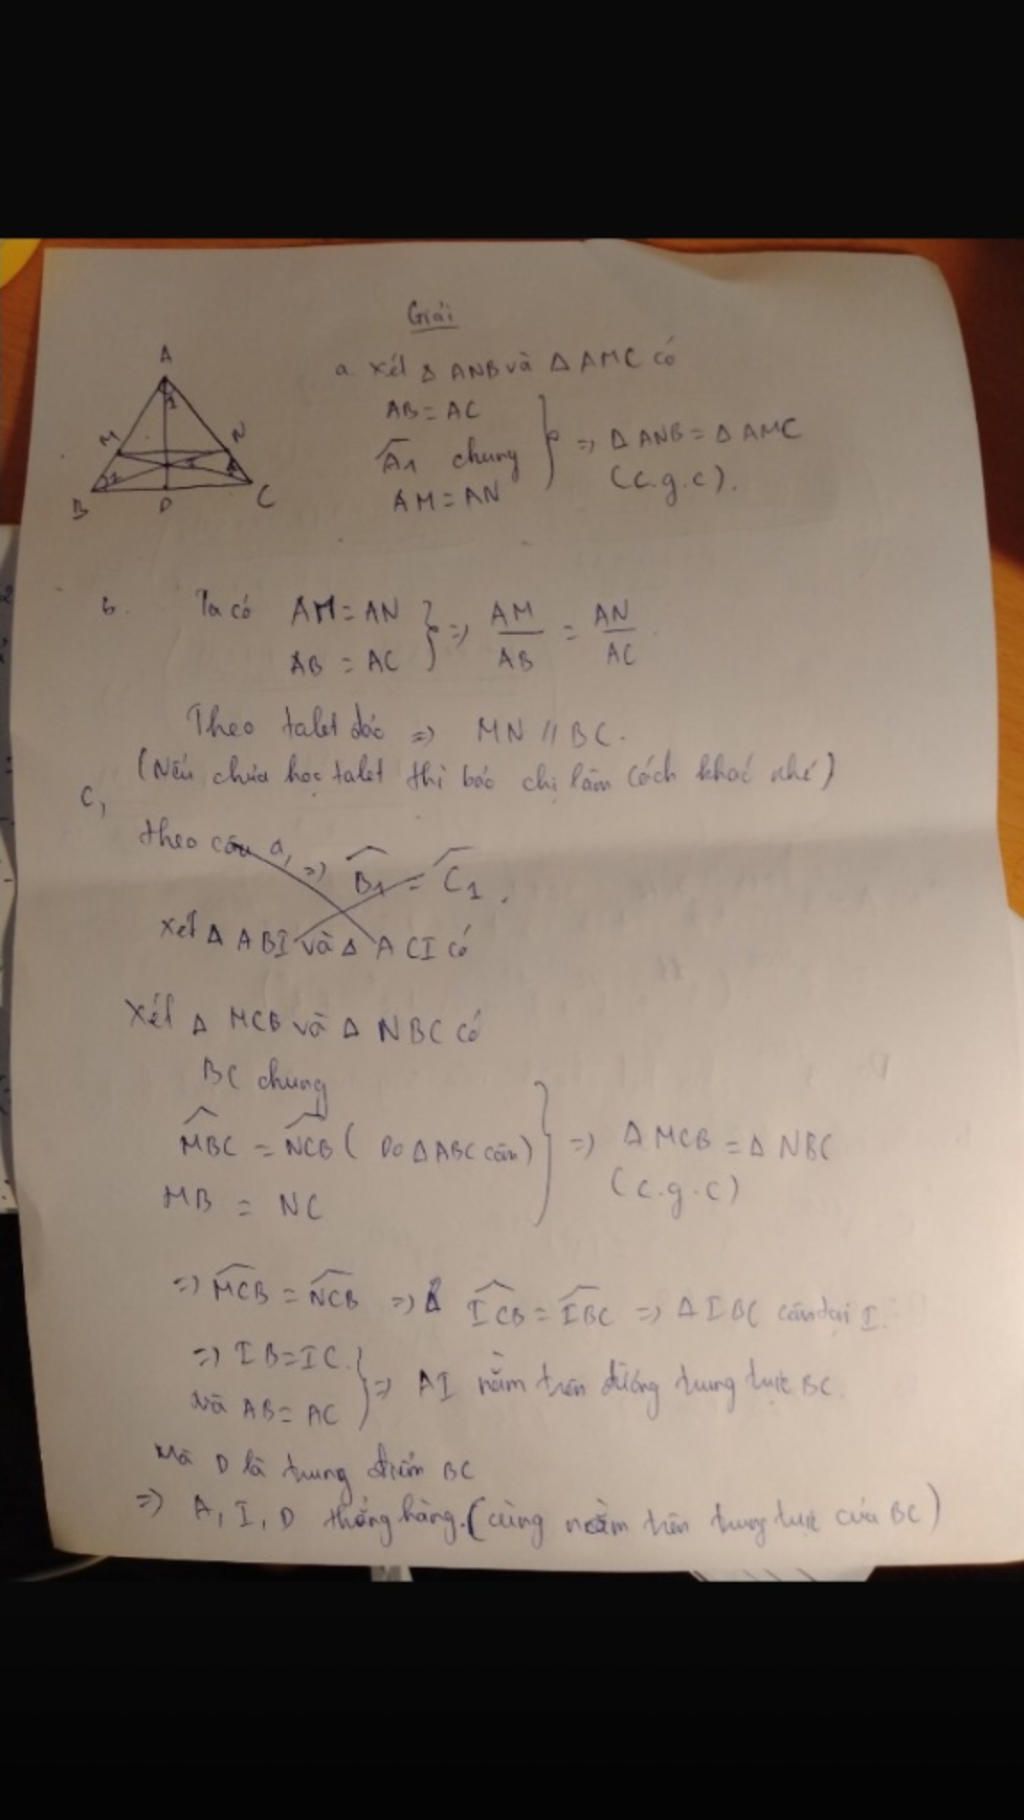 Giải
A
1
M
N
B
D
C
a. Xét Δ ANB và Δ AMC có
AB = AC
Â1 chung
AM = AN
=> Δ ANB = Δ AMC
(c.g.c).
b. Ta có AM = AN
AB = AC
=> AM/AB = AN/AC
Theo talet đảo => MN // BC.
(Nếu chưa học talet thì bảo chị làm cách khác nhé)
C,
theo câu a, => B̂1 = Ĉ1.
Xét Δ ABI và Δ ACI có
Xét Δ MCB và Δ NBC có
BC chung
MBC = NCB (Do ΔABC cân)
MB = NC
=> Δ MCB = Δ NBC
(c.g.c)
=> MCB = NCB => ICB = IBC => Δ IBC cân tại I.
=> IB = IC.
và AB = AC
=> AI nằm trên đường trung trực BC.
Mà D là trung điểm BC
=> A, I, D thẳng hàng. (cùng nằm trên trung trực của BC)